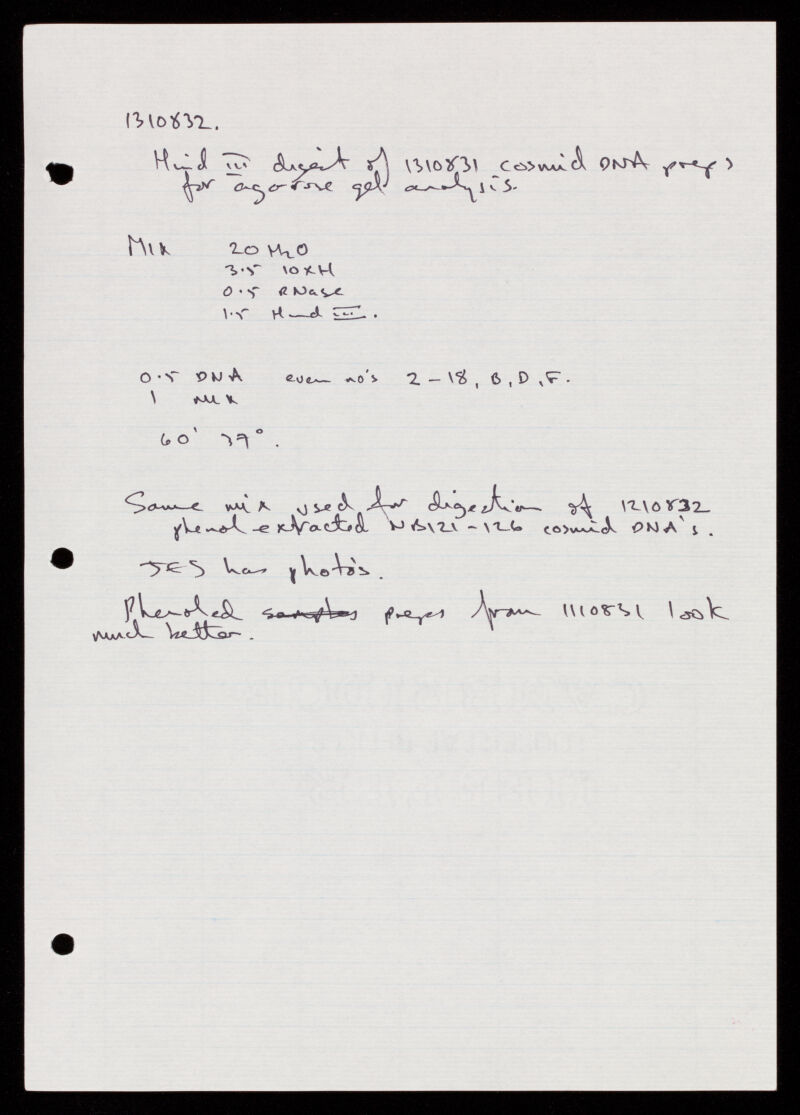 1310832.
Hind III digest of 1310831 cosmid DNA preps
for agarose gel analysis.
MIX 20 H2O
3.5 10xH
0.5 RNase
1.5 Hind III.
0.5 DNA even no's 2-18, B, D, F.
1 MIX
60' 37°.
Same mix used for digestion of 1210832
phenol extracted NB121-126 cosmid DNA's.
JES has photo's.
Phenoled samples preps from 1110831 look
much better.